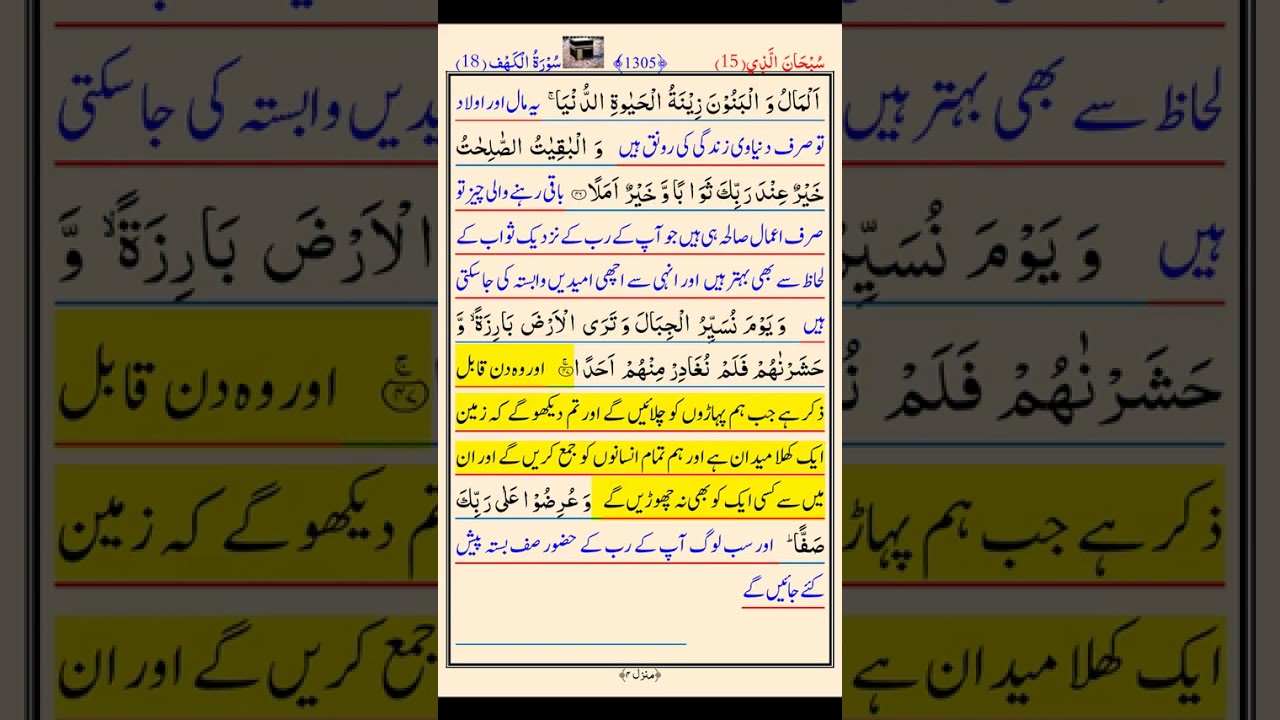 سُبْحَانَ الَّذِي(15) ﴿1305﴾ سُوْرَةُ الْكَهْف(18)
اَلْمَالُ وَ الْبَنُوْنَ زِيْنَةُ الْحَيٰوةِ الدُّنْيَا ۚ یہ مال اور اولاد
تو صرف دنیاوی زندگی کی رونق ہیں وَ الْبٰقِيٰتُ الصّٰلِحٰتُ
خَيْرٌ عِنْدَ رَبِّكَ ثَوَابًا وَّ خَيْرٌ اَمَلًا ﴿۴۶﴾ باقی رہنے والی چیز تو
صرف اعمال صالحہ ہی ہیں جو آپ کے رب کے نزدیک ثواب کے
لحاظ سے بھی بہتر ہیں اور انہی سے اچھی امیدیں وابستہ کی جا سکتی
ہیں وَ يَوْمَ نُسَيِّرُ الْجِبَالَ وَ تَرَى الْاَرْضَ بَارِزَةً ۙ وَّ
حَشَرْنٰهُمْ فَلَمْ نُغَادِرْ مِنْهُمْ اَحَدًا ۚ﴿۴۷﴾ اور وہ دن قابل
ذکر ہے جب ہم پہاڑوں کو چلائیں گے اور تم دیکھو گے کہ زمین
ایک کھلا میدان ہے اور ہم تمام انسانوں کو جمع کریں گے اور ان
میں سے کسی ایک کو بھی نہ چھوڑیں گے وَ عُرِضُوْا عَلٰى رَبِّكَ
صَفًّا ؕ اور سب لوگ آپ کے رب کے حضور صف بستہ پیش
کئے جائیں گے
﴿منزل ۴﴾